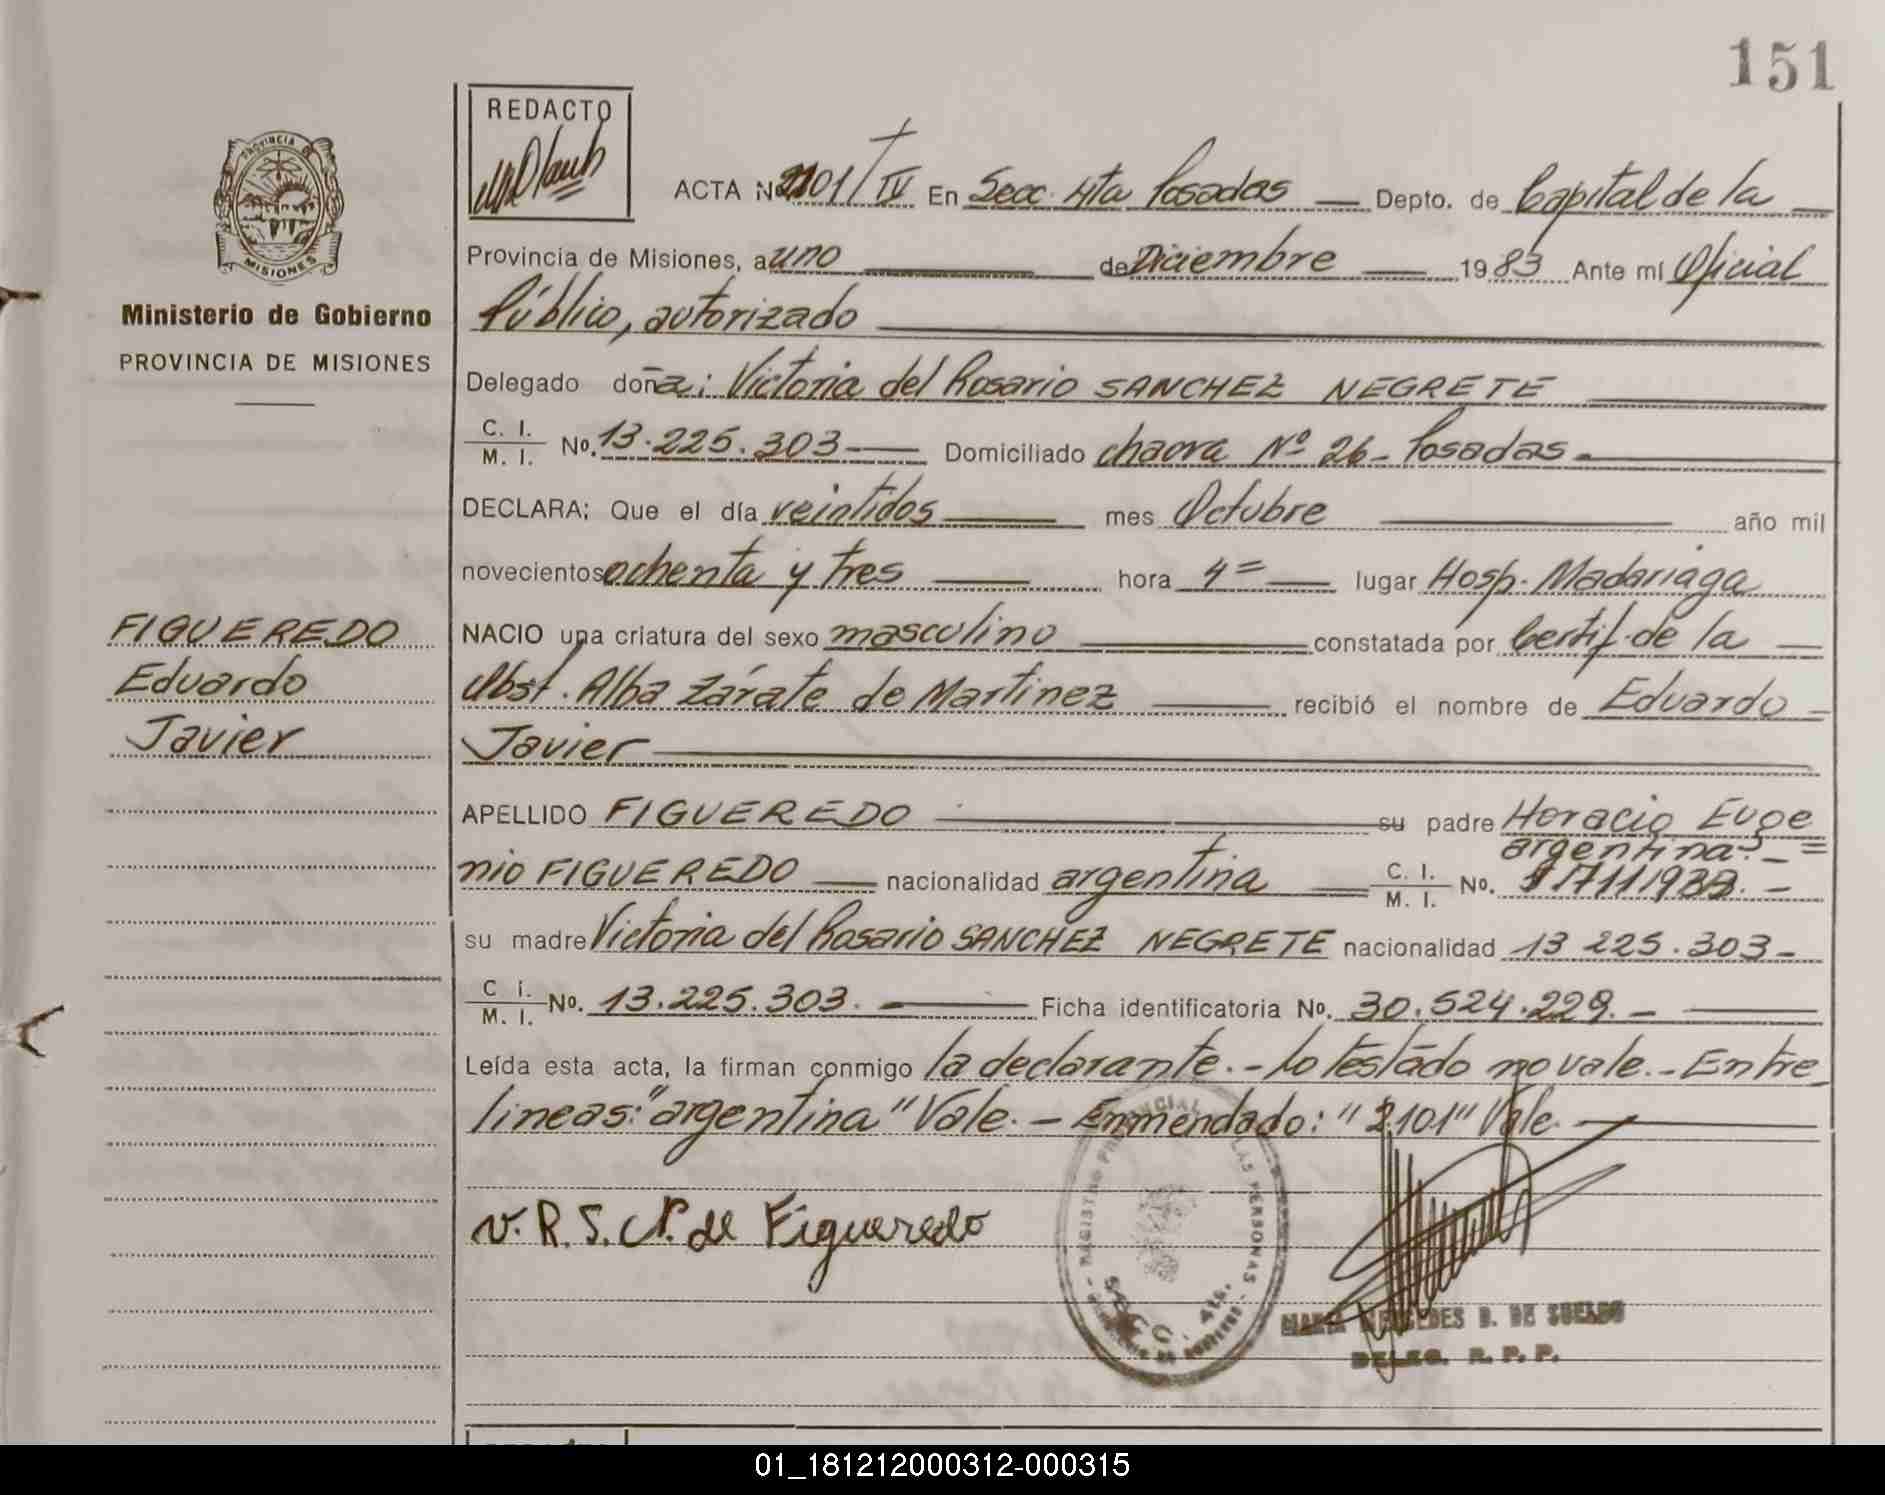 151
REDACTO
ACTA No. 2101/IV En Secc. 4ta Posadas — Depto. de Capital de la —
PROVINCIA DE
MISIONES
Provincia de Misiones, a uno — de Diciembre — 1983 Ante mí Oficial
Ministerio de Gobierno
Público, autorizado —
PROVINCIA DE MISIONES
Delegado doña: Victoria del Rosario SANCHEZ NEGRETE —
C. I.
M. I. No. 13.225.303 — Domiciliado chacra Nº 26 - Posadas. —
DECLARA: Que el día veintidos — mes Octubre — año mil
novecientos ochenta y tres — hora 4= — lugar Hosp. Madariaga
FIGUEREDO
NACIO una criatura del sexo masculino — constatada por Certif. de la —
Eduardo
Obst. Alba Zárate de Martinez — recibió el nombre de Eduardo —
Javier
Javier —
APELLIDO FIGUEREDO — su padre Horacio Euge
argentina. - =
nio FIGUEREDO — nacionalidad argentina — C. I.
M. I. No.
su madre Victoria del Rosario SANCHEZ NEGRETE nacionalidad 13 225.303 -
C. I.
M. I. No. 13.225.303. — Ficha identificatoria No. 30.524.229. - —
Leída esta acta, la firman conmigo la declarante. - Lo testado no vale. - Entre
líneas: "argentina" Vale. - Enmendado: "2101" Vale. —
V. R. S. N. de Figueredo
REGISTRO PROVINCIAL DE LAS PERSONAS
SECC. 4ta.
MINISTERIO DE GOBIERNO
MARIA MERCEDES B. DE SUELDO
DELEG. R. P. P.
01_181212000312-000315